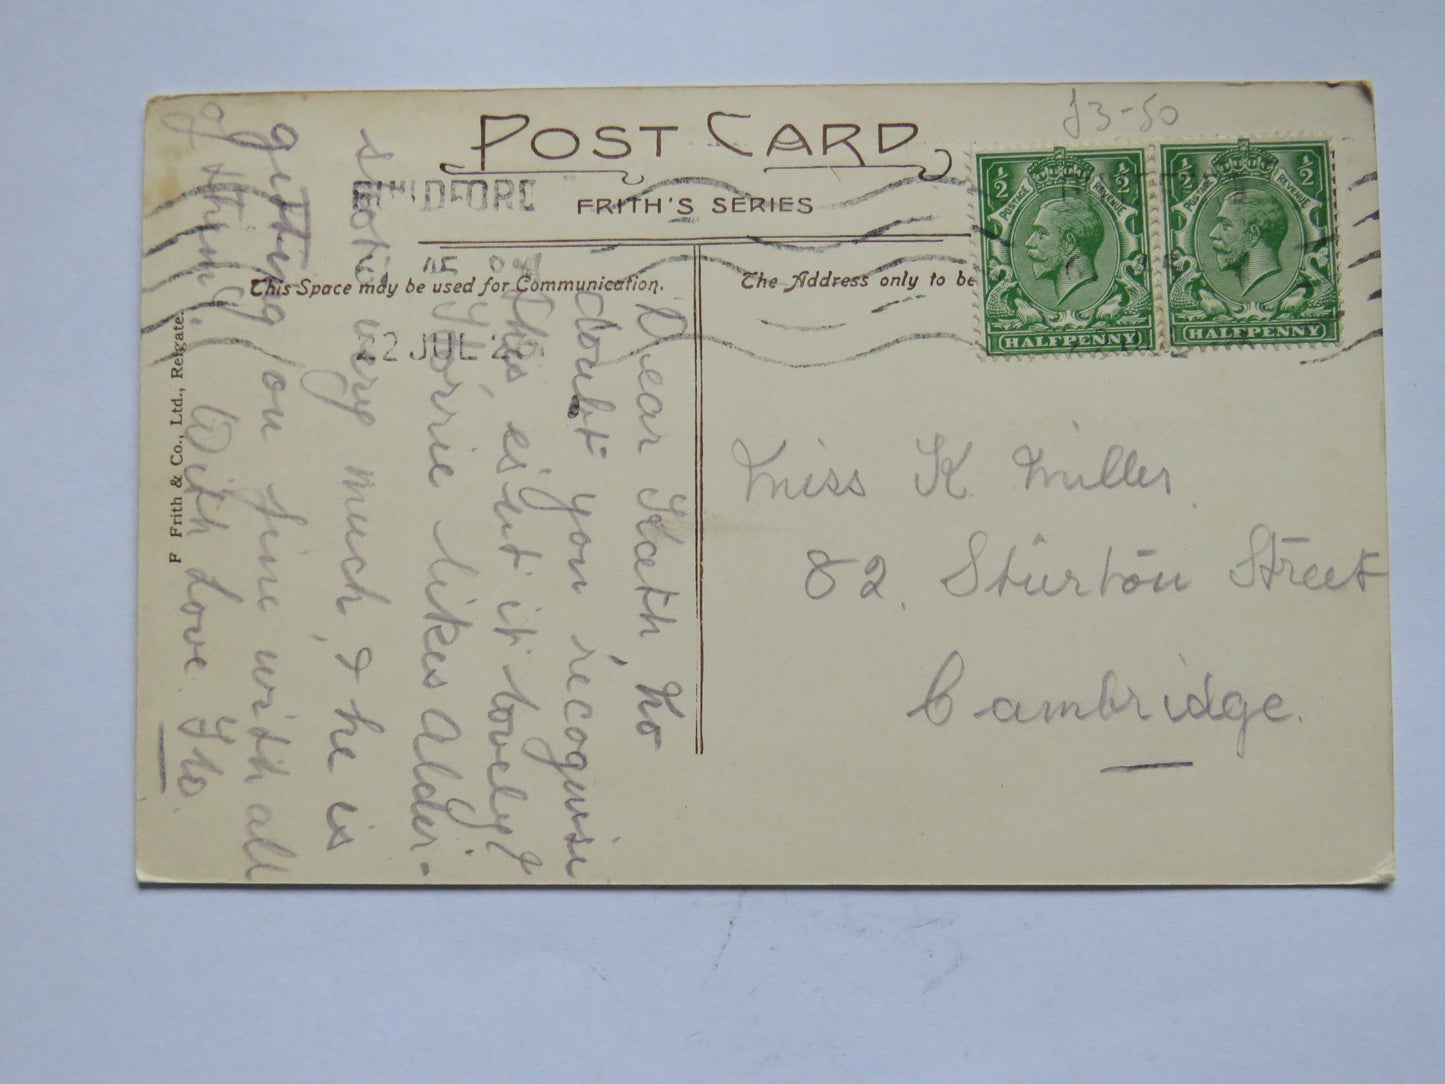 £3-50
POST CARD
FRITH'S SERIES
GUILDFORD
22 JUL 2
This Space may be used for Communication.
The Address only to be
½ ½
POSTAGE REVENUE
HALFPENNY
½ ½
POSTAGE REVENUE
HALFPENNY
F Frith & Co., Ltd., Reigate.
Dear Kath, No
doubt you recognise
this, es'nt it lovely?
Horrie likes Alder-
shot very much, & he is
getting on fine with all
of thing. With Love. Flo.
Miss K. Miller
82. Sturton Street
Cambridge.